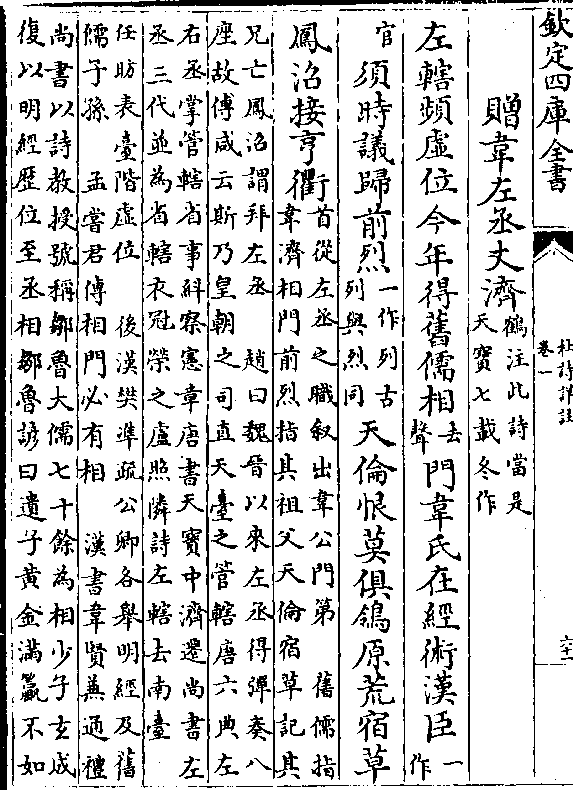 欽定四庫全書
杜詩詳註
卷一
六十一
贈韋左丞丈濟
鶴注此詩當是
天寶七載冬作
左轄頻虛位今年得舊儒相去聲門韋氏在經術漢臣一作
官須時議歸前烈一作列古列與烈同天倫恨莫俱鴒原荒宿草
鳳沼接亨衢
首從左丞之職叙出韋公門第 舊儒指
韋濟相門前烈指其祖父天倫宿草記其
兄亡鳳沼謂拜左丞 趙曰魏晉以來左丞得彈奏八
座故傅咸云斯乃皇朝之司直天臺之管轄唐六典左
右丞掌管轄省事糾察憲章唐書天寶中濟遷尚書左
丞三代並為省轄衣冠榮之盧照隣詩左轄去南臺
任昉表臺階虛位 後漢樊準疏公卿各舉明經及舊
儒子孫 孟嘗君傳相門必有相 漢書韋賢兼通禮
尚書以詩教授號稱鄒魯大儒七十餘為相少子玄成
復以明經歷位至丞相鄒魯諺曰遺子黃金滿籯不如